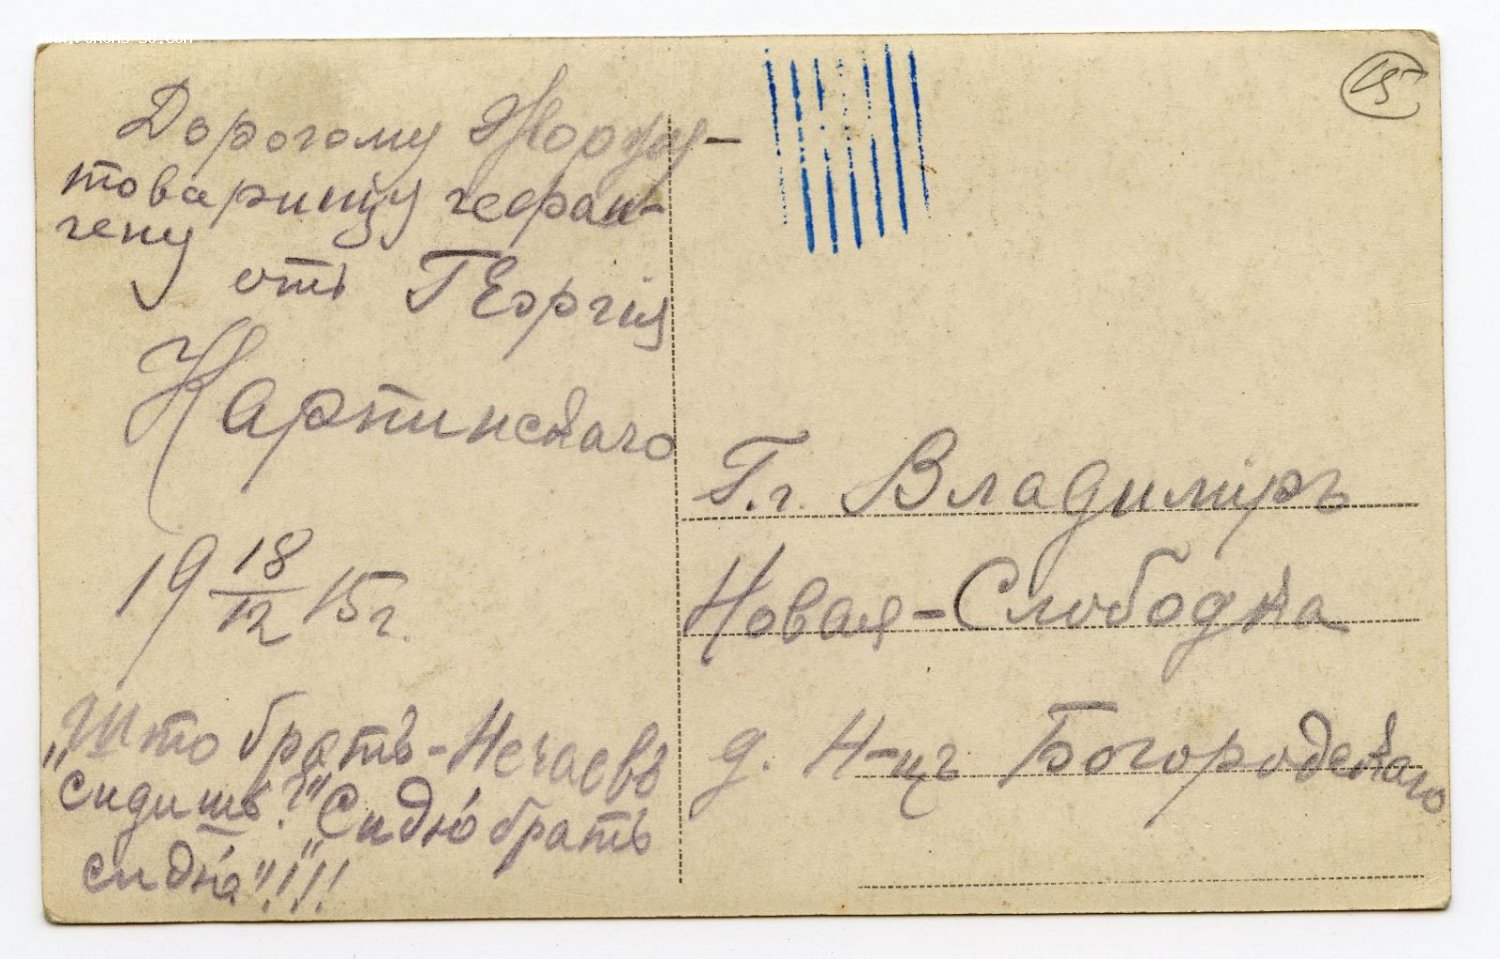 Дорогому Жоржу-
товарищу гефрай-
теру
отъ Георгія
Карпинскаго
19 18/12 15 г.
„Што братъ-Нечаевъ
сидишь?" „Сидю братъ
сидю"!!!
Г.г. Владиміръ
Новая-Слободка
д. Н-цъ Богородскаго
15